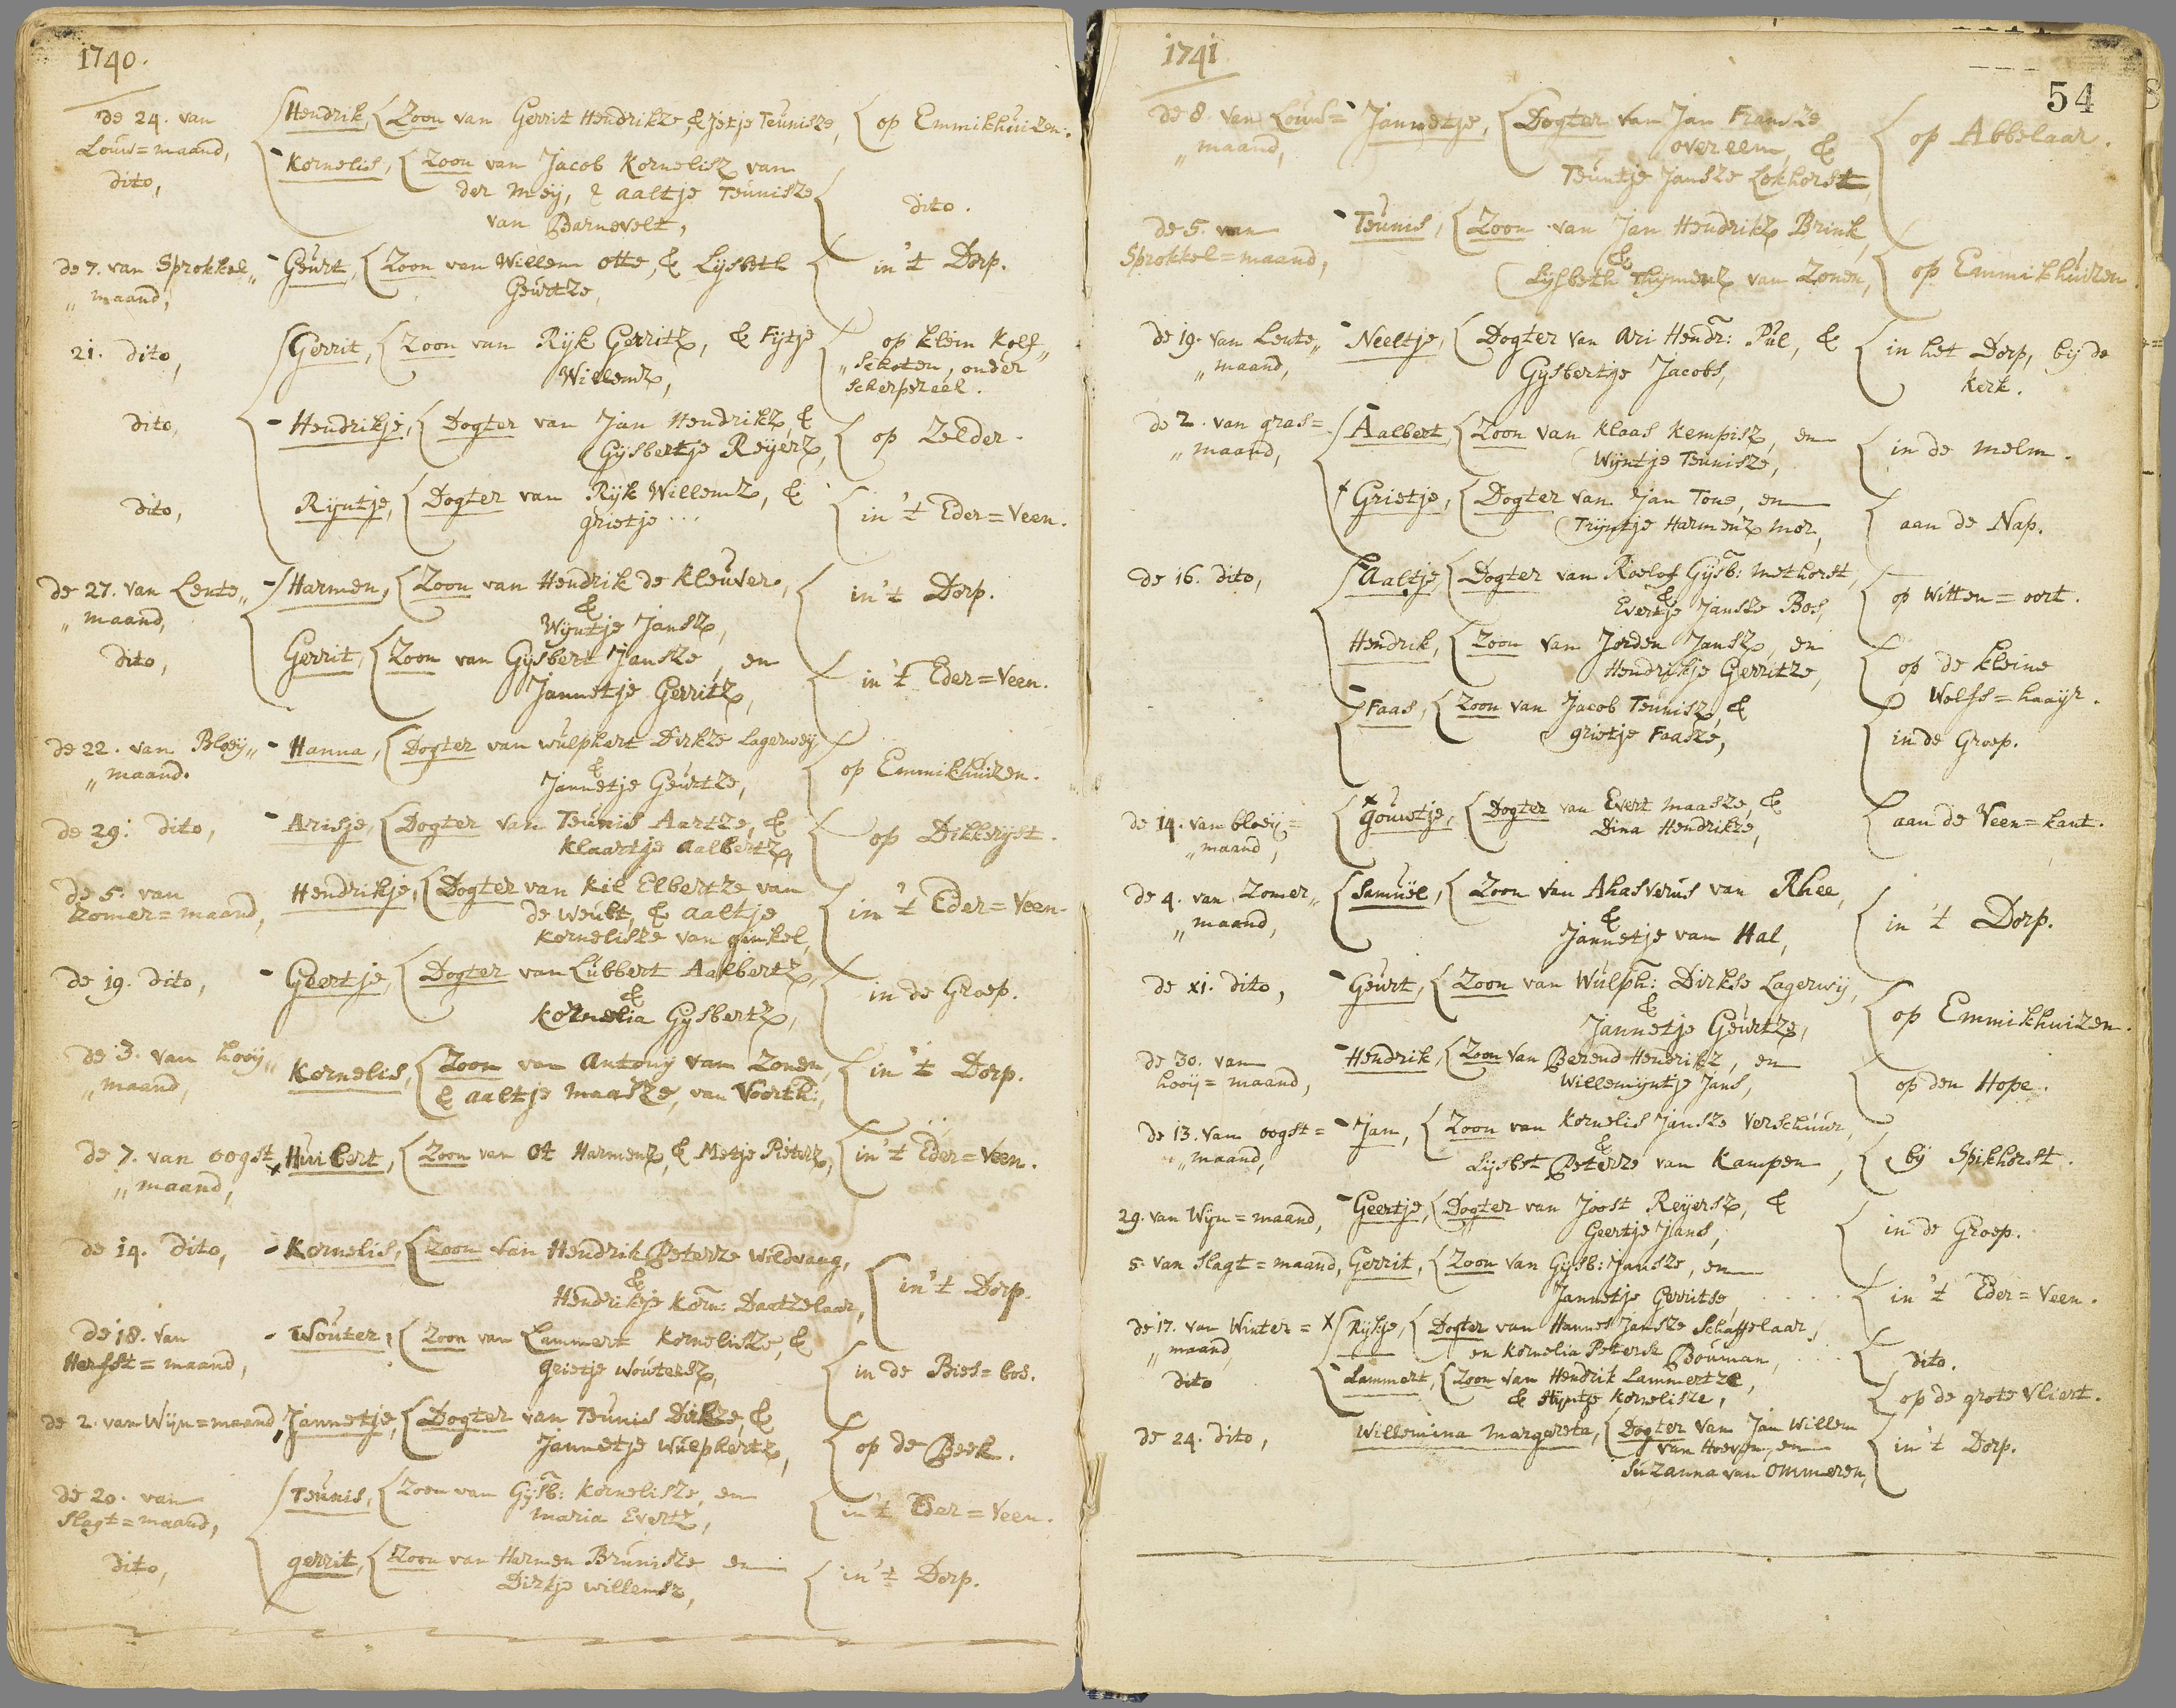 1740.
de 24. van Hendrik, Zoon van Gerrit Hendrikze, & Jetje Teunisze, op Emmikhuizen.
Louw=maand,
dito, Kornelis, Zoon van Jacob Kornelisz van
der Meij, & Aaltje Teunisze dito.
van Barnevelt,
de 7. van Sprokkel„ Geurt, Zoon van Willem Otte, & Lijsbeth in 't Dorp.
„maand, Geurtze,
21. dito, Gerrit, Zoon van Rijk Gerritz, & Fijtje op klein Kolf„
Willemz, „Schoten, onder
Scherpezeel.
dito, Hendrikje, Dogter van Jan Hendrikz, & op Zelder.
Gijsbertje Reijerz,
dito, Rijntje, Dogter van Rijk Willemz, & in 't Eder=Veen.
grietje ...
de 27. van Lente„ Harmen, Zoon van Hendrik de Kleuver, in 't Dorp.
„maand, &
Wijntje Jansz,
dito, Gerrit, Zoon van Gijsbert Jansze, en in 't Eder=Veen.
Jannetje Gerritz,
de 22. van Bloeij„ Hanna, Dogter van Wulphert Dirkze Lagerweij
„maand. & op Emmikhuizen.
Jannetje Geurtze,
de 29. dito, Arisje, Dogter van Teunis Aartze, & op Dikkerijst.
Klaartje Aalbertz,
de 5. van Hendrikje, Dogter van Kil Elbertze van in 't Eder=Veen.
Zomer=maand, de Weult, & Aaltje
Kornelisze van ginkel,
de 19. dito, Geertje, Dogter van Lubbert Aalbertz, in de Groep.
&
Kornelia Gijsbertz,
de 3. van hooij„ Kornelis, Zoon van Antony van Zonen, in 't Dorp.
„maand, & Aaltje Maasze, van Voorth:,
de 7. van oogst Huibert, Zoon van Ot Harmenz, & Metje Pieterz, in 't Eder=Veen.
„maand,
de 14. dito, Kornelis, Zoon van Hendrik Peterze Wildvang,
& in 't Dorp.
Hendrikje Korn: Daatzelaar,
de 18. van Wouter, Zoon van Lammert Kornelisze, & in de Bies=bos.
Herfst=maand, grietje Woutersz,
de 2. van Wijn=maand, Jannetje, Dogter van Teunis Dirkze, & op de Beek.
Jannetje Wulphertz,
de 20. van Teunis, Zoon van Gijsb: Kornelisze, en in 't Eder=Veen.
Slagt=maand, Maria Evertz,
dito, gerrit, Zoon van Harmen Brunisze en in 't Dorp.
Dirkje Willemsz,
1741
54
de 8. van Louw= Jannetje, Dogter van Jan Fransze op Abbelaar.
„maand, overeem, &
Teuntje Jansze Lokhorst,
de 5. van Teunis, Zoon van Jan Hendrikz Brink,
Sprokkel=maand, & op Emmikhuizen
Lijsbeth Thijmenz van Zonen,
de 19. van Lente„ Neeltje, Dogter van Ari Hendr: Pul, & in het Dorp, bij de
„maand, Gijsbertje Jacobs, Kerk.
de 2. van gras= Aalbert, Zoon van Klaas Kempisz, en in de Melm.
„maand, Wijntje Teunisze,
Grietje, Dogter van Jan Tone, en aan de Nap.
Trijntje Harmenz Mor,
de 16. dito, Aaltje, Dogter van Roelof Gijsb: Methorst,
& op Witten=oort.
Evertje Jansze Bos,
Hendrik, Zoon van Jorden Jansz, en op de kleine
Hendrikje Gerritze, Wolfs=haaijr.
Faas, Zoon van Jacob Teunisz, & in de Groep.
grietje Faasze,
de 14. van bloeij= Gouwtje, Dogter van Evert Maasze, & aan de Veen=kant.
„maand, Dina Hendrikze,
de 4. van Zomer„ Samuël, Zoon van Ahasverus van Rhee,
„maand, & in 't Dorp.
Jannetje van Hal,
de xi. dito, Geurt, Zoon van Wulph: Dirkse Lagerwij,
& op Emmikhuizen.
Jannetje Geurtze,
de 30. van Hendrik, Zoon van Berend Hendrikz, en op den Hope.
hooij=maand, Willemijntje Jans,
de 13. van oogst= Jan, Zoon van Kornelis Jansze Verschuur,
„maand, & bij Spikhorst.
Lijsbet Peterze van Kampen,
29. van Wijn=maand, Geertje, Dogter van Joost Reijersz, & in de Groep.
Geertje Jans,
5. van Slagt=maand, Gerrit, Zoon van Gijsb: Jansze, en
Jannetje Gerritse, in 't Eder=Veen.
de 17. van Winter= Rijkje, Dogter van Hannes Jansze Schaffelaar,
„maand, en Kornelia Petersz Bouman, dito.
dito Lammert, Zoon van Hendrik Lammertze,
& Stijntje Kornelisze, op de grote Vliert.
de 24. dito, Willemina Margareta, Dogter van Jan Willem
van Hoeven, en in 't Dorp.
Suzanna van Ommeren,